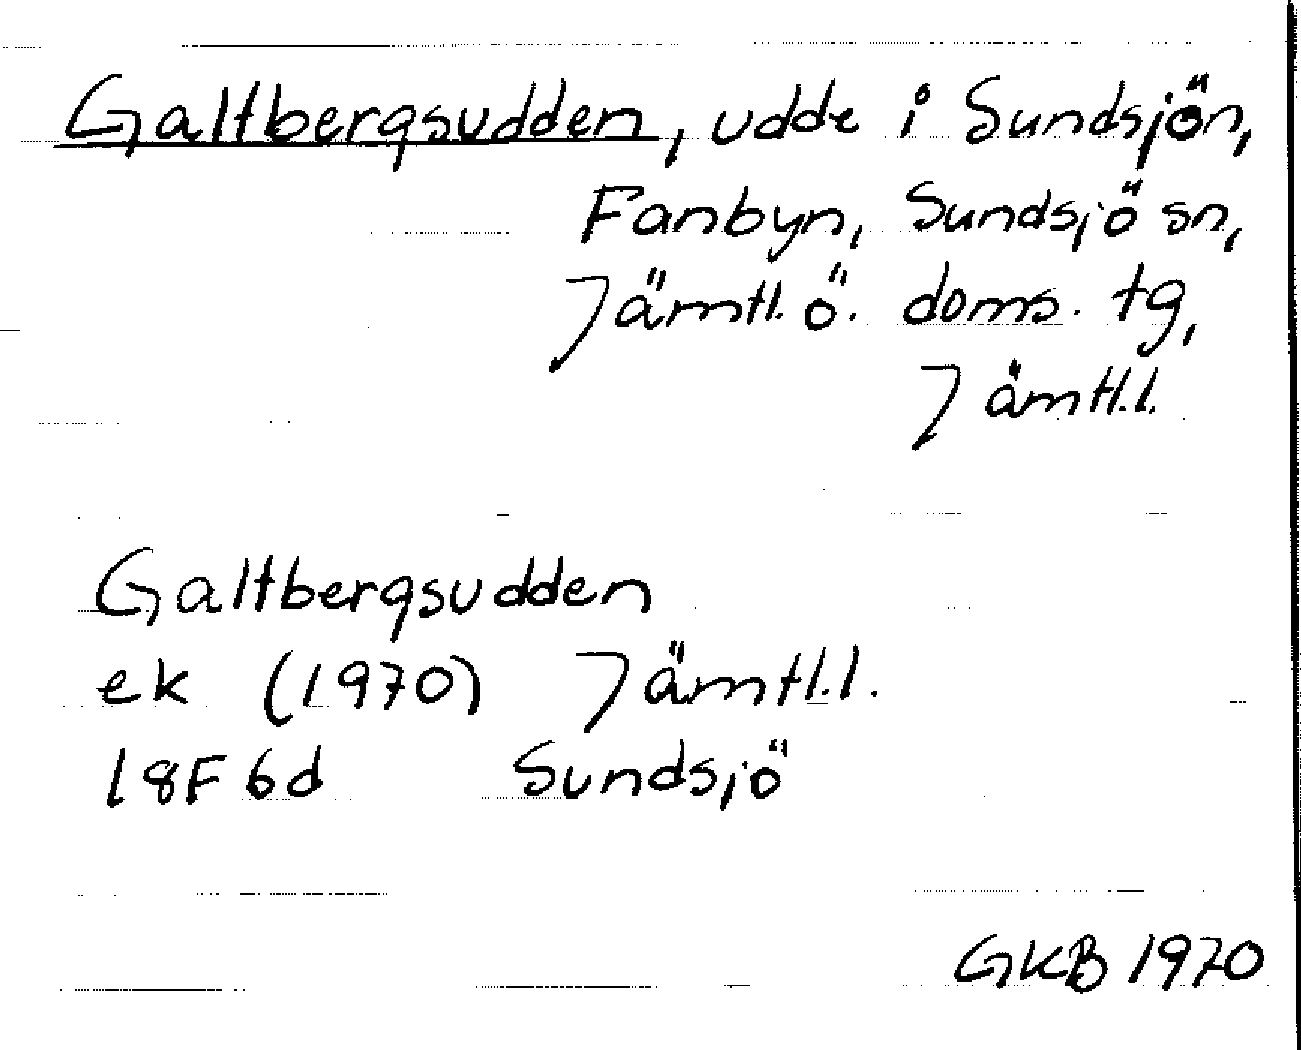 Galtbergsudden, udde i Sundsjön,
Fanbyn, Sundsjö sn,
Jämtl. ö. doms. tg,
Jämtl.l.
Galtbergsudden
ek (1970) Jämtl.l.
18F 6d Sundsjö
GKB 1970